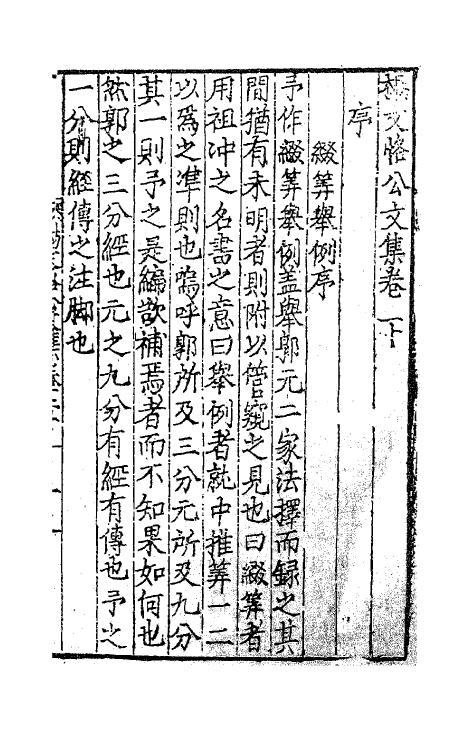 楊文恪公文集卷 十
序
綴筭舉例序
予作綴筭舉例盖舉郭元二家法擇而録之其
間猶有未明者則附以管窺之見也曰綴筭者
用祖冲之名書之意曰舉例者就中推筭一二
以爲之準則也嗚呼郭所及三分元所及九分
其一則予之是編欲補焉者而不知果如何也
然郭之三分經也元之九分有經有傳也予之
一分則經傳之注脚也